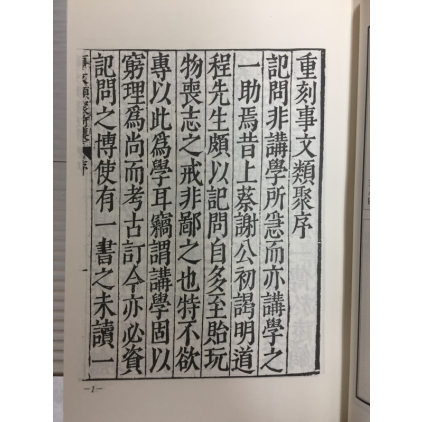 重刻事文類聚序
記問非講學所急而亦講學之
一助焉昔上蔡謝公初謁明道
程先生頗以記問自多至貽玩
物喪志之戒非鄙之也特不欲
專以此爲學耳竊謂講學固以
窮理爲尚而考古訂今亦必資
記問之博使有一書之未讀一
事文類聚前集 序
—1—